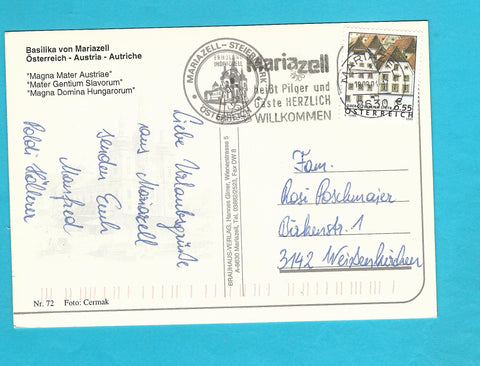 Basilika von Mariazell
Österreich - Austria - Autriche
"Magna Mater Austriae"
"Mater Gentium Slavorum"
"Magna Domina Hungarorum"
MARIAZELL - STEIERMARK
ÖSTERREICH
Mariazell
heißt Pilger und
Gäste HERZLICH
WILLKOMMEN
8630
€ 0,55
ÖSTERREICH
Liebe Urlaubsgrüße
aus Mariazell
senden Euch
Manfred
Poldi
BRAUHAUS-VERLAG, Hannes Girrer, Wienerstrasse 5
A-8630 Mariazell, Tel. 03882/2523, Fax DW 8
Fam.
Rosi Poschmaier
Birkenstr. 1
3142 Weißenkirchen
Nr. 72 Foto: Cermak